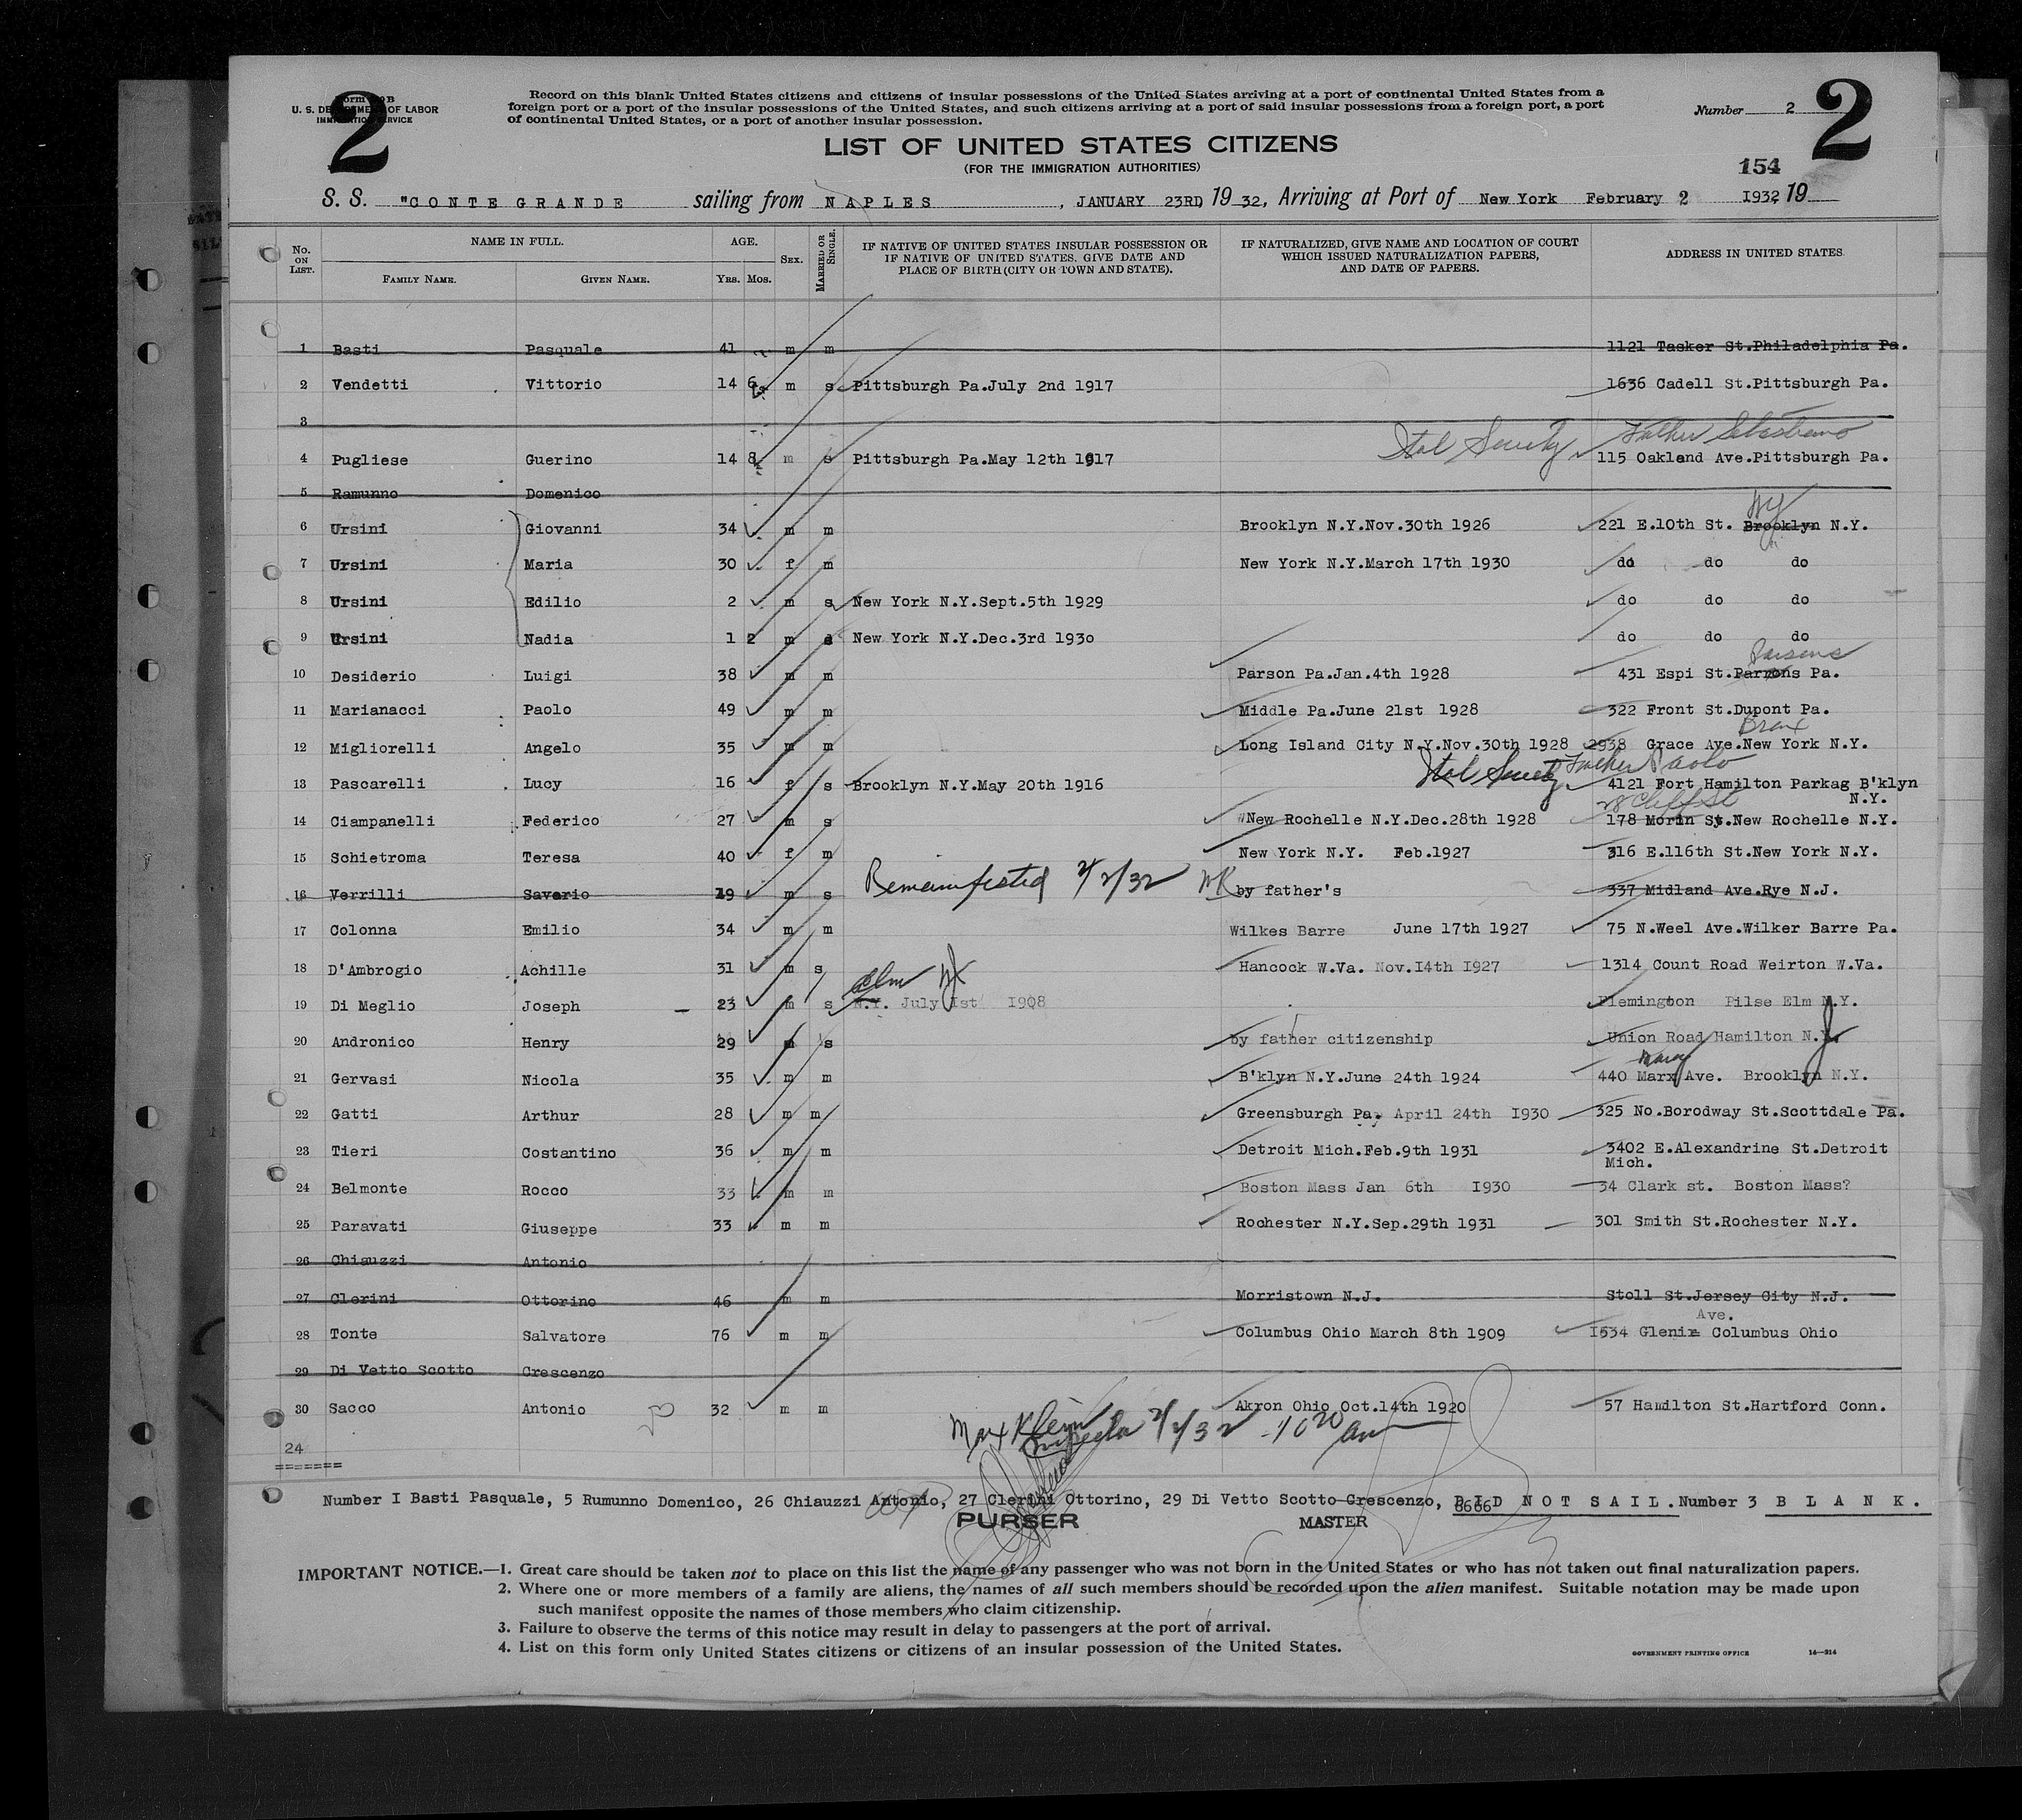 2
2
Form 630 B
U. S. DEPARTMENT OF LABOR
IMMIGRATION SERVICE
Record on this blank United States citizens and citizens of insular possessions of the United States arriving at a port of continental United States from a
foreign port or a port of the insular possessions of the United States, and such citizens arriving at a port of said insular possessions from a foreign port, a port
of continental United States, or a port of another insular possession.
Number 2
LIST OF UNITED STATES CITIZENS
(FOR THE IMMIGRATION AUTHORITIES)
154
S. S. "CONTE GRANDE sailing from NAPLES, JANUARY 23RD, 1932, Arriving at Port of New York February 2 1932 19
No. ON LIST. NAME IN FULL. AGE. SEX. MARRIED OR SINGLE. IF NATIVE OF UNITED STATES INSULAR POSSESSION OR IF NATIVE OF UNITED STATES, GIVE DATE AND PLACE OF BIRTH (CITY OR TOWN AND STATE). IF NATURALIZED, GIVE NAME AND LOCATION OF COURT WHICH ISSUED NATURALIZATION PAPERS, AND DATE OF PAPERS. ADDRESS IN UNITED STATES
FAMILY NAME. GIVEN NAME. YRS. MOS.
1 Basti Pasquale 41 m m 1121 Tasker St.Philadelphia Pa.
2 Vendetti Vittorio 14 6 m s Pittsburgh Pa.July 2nd 1917 1636 Cadell St.Pittsburgh Pa.
3
Ital Society Father
4 Pugliese Guerino 14 8 m s Pittsburgh Pa.May 12th 1917 115 Oakland Ave.Pittsburgh Pa.
5 Ramunno Domenico
NY
6 Ursini Giovanni 34 m m Brooklyn N.Y.Nov.30th 1926 221 E.10th St. Brooklyn N.Y.
7 Ursini Maria 30 f m New York N.Y.March 17th 1930 do do do
8 Ursini Edilio 2 m s New York N.Y.Sept.5th 1929 do do do
9 Ursini Nadia 1 2 m s New York N.Y.Dec.3rd 1930 do do do
Parsons
10 Desiderio Luigi 38 m m Parson Pa.Jan.4th 1928 431 Espi St.Parrons Pa.
11 Marianacci Paolo 49 m m Middle Pa.June 21st 1928 322 Front St.Dupont Pa.
Bronx
12 Migliorelli Angelo 35 m m Long Island City N.Y.Nov.30th 1928 2938 Grace Ave.New York N.Y.
Ital Society Father Paolo
13 Pascarelli Lucy 16 f s Brooklyn N.Y.May 20th 1916 4121 Fort Hamilton Parkag B'klyn
N.Y.
28 Cliff St
14 Ciampanelli Federico 27 m s New Rochelle N.Y.Dec.28th 1928 178 Morin St.New Rochelle N.Y.
15 Schietroma Teresa 40 f m New York N.Y. Feb.1927 316 E.116th St.New York N.Y.
16 Verrilli Saverio 19 m s Remanifested 2/2/32 MK by father's 337 Midland Ave.Rye N.J.
17 Colonna Emilio 34 m m Wilkes Barre June 17th 1927 75 N.Weel Ave.Wilker Barre Pa.
18 D'Ambrogio Achille 31 m s Hancock W.Va. Nov.14th 1927 1314 Count Road Weirton W.Va.
Elm MK
19 Di Meglio Joseph 23 m s N.Y. July 1st 1908 Flemington Pilse Elm N.Y.
20 Andronico Henry 29 m s by father citizenship Union Road Hamilton N.J
21 Gervasi Nicola 35 m m B'klyn N.Y.June 24th 1924 440 Marx Ave. Brooklyn N.Y.
22 Gatti Arthur 28 m m Greensburgh Pa. April 24th 1930 325 No.Borodway St.Scottdale Pa.
23 Tieri Costantino 36 m m Detroit Mich.Feb.9th 1931 3402 E.Alexandrine St.Detroit
Mich.
24 Belmonte Rocco 33 m m Boston Mass Jan 6th 1930 34 Clark st. Boston Mass?
25 Paravati Giuseppe 33 m m Rochester N.Y.Sep.29th 1931 301 Smith St.Rochester N.Y.
26 Chiauzzi Antonio
27 Clerini Ottorino 46 m m Morristown N.J. Stoll St.Jersey City N.J.
Ave.
28 Tonte Salvatore 76 m m Columbus Ohio March 8th 1909 1534 Glenir Columbus Ohio
29 Di Vetto Scotto Crescenzo
30 Sacco Antonio 32 m m Akron Ohio Oct.14th 1920 57 Hamilton St.Hartford Conn.
Max Klein Inspector 2/2/32 10 20 am
24
=======
Number I Basti Pasquale, 5 Rumunno Domenico, 26 Chiauzzi Antonio, 27 Clerini Ottorino, 29 Di Vetto Scotto Crescenzo, DID NOT SAIL. Number 3 BLANK.
PURSER MASTER
IMPORTANT NOTICE.—1. Great care should be taken not to place on this list the name of any passenger who was not born in the United States or who has not taken out final naturalization papers.
2. Where one or more members of a family are aliens, the names of all such members should be recorded upon the alien manifest. Suitable notation may be made upon
such manifest opposite the names of those members who claim citizenship.
3. Failure to observe the terms of this notice may result in delay to passengers at the port of arrival.
4. List on this form only United States citizens or citizens of an insular possession of the United States.
GOVERNMENT PRINTING OFFICE 14—214